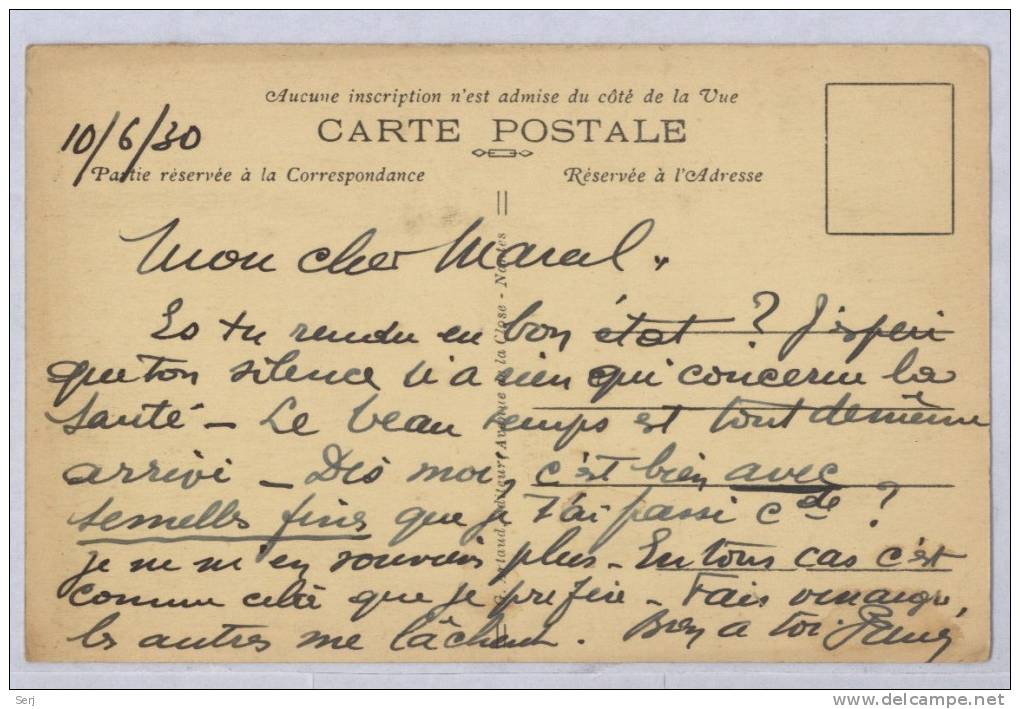 Aucune inscription n'est admise du côté de la Vue
CARTE POSTALE
10/6/30
Partie réservée à la Correspondance
Réservée à l'Adresse
Mon cher Marcel,
Es tu rendu en bon état ? J'espère
que ton silence n'a rien qui concerne la
Santé - Le beau temps est tout de même
arrivé - Dis moi, c'est bien avec
semelles fines que je t'ai passé cde ?
je ne m'en souviens plus - En tous cas c'est
comme cela que je préfère - Fais vinaigre,
les autres me lâchent. Bien à toi.
Artaud, Editeur, Avenue de la Close - Nantes
Serj
www.delcampe.net